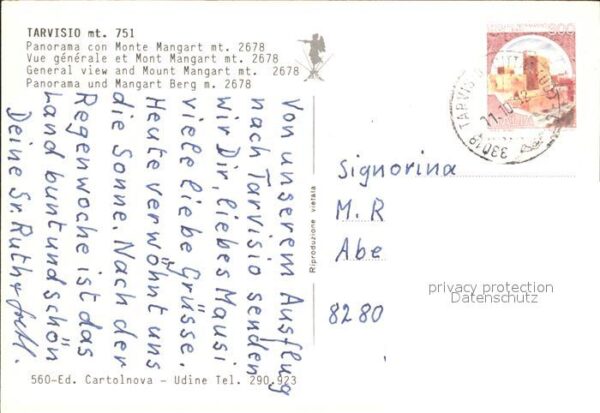 TARVISIO mt. 751
Panorama con Monte Mangart mt. 2678
Vue générale et Mont Mangart mt. 2678
General view and Mount Mangart mt. 2678
Panorama und Mangart Berg m. 2678
Von unserem Ausflug
nach Tarvisio senden
wir Dir, liebes Mausi
viele liebe Grüsse.
Heute verwöhnt uns
die Sonne. Nach der
Regenwoche ist das
Land bunt und schön
Deine Sr. Ruth
560-Ed. Cartolnova - Udine Tel. 290.923
Riproduzione vietata
800
33018 TARVIS
11.10.
Signorina
M. R
Abe
8280
privacy protection
Datenschutz